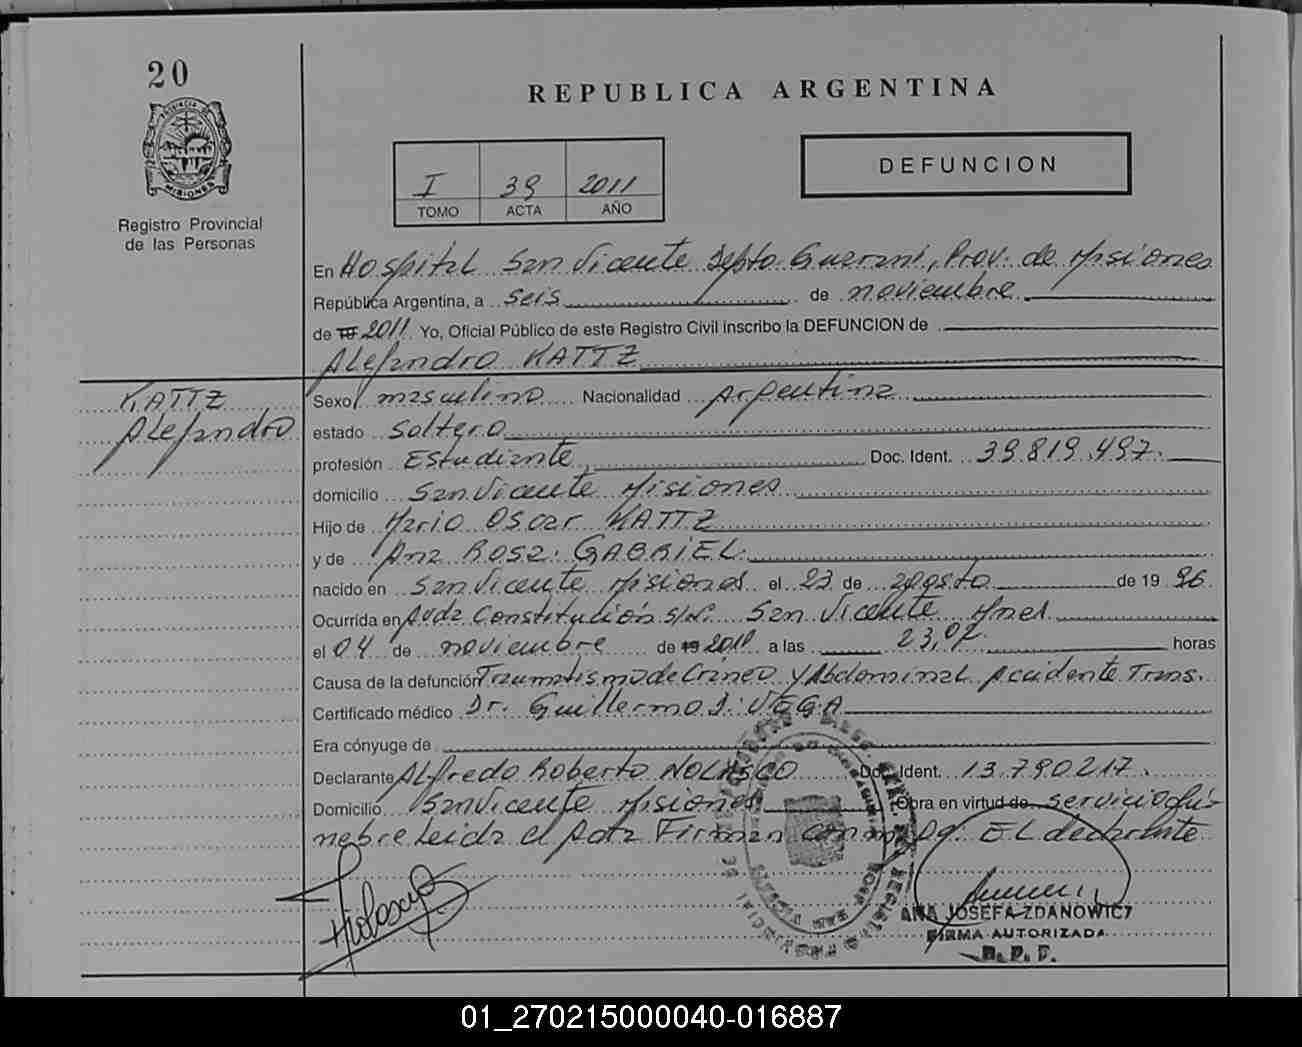 20
REPUBLICA ARGENTINA
PROVINCIA DE
MISIONES
Registro Provincial
de las Personas
I 39 2011
TOMO ACTA AÑO
DEFUNCION
En Hospital San Vicente Depto Guarani, Prov. de Misiones
República Argentina, a seis de noviembre
de 19 2011. Yo, Oficial Público de este Registro Civil inscribo la DEFUNCION de
Alejandro KATTZ
KATTZ
Alejandro
Sexo masculino Nacionalidad Argentina
estado Soltero
profesión Estudiante, Doc. Ident. 39.819.497.
domicilio San Vicente Misiones
Hijo de Mario Oscar KATTZ
y de Ana Rosa. GABRIEL.
nacido en San Vicente Misiones el 23 de agosto de 19 96
Ocurrida en Avda Constitución s/n. San Vicente Mnes
el 04 de noviembre de 19 2011 a las 23,07 horas
Causa de la defunción Traumatismo de Craneo y Abdominal Accidente Trans.
Certificado médico Dr. Guillermo J. VEGA
Era cónyuge de
Declarante Alfredo Roberto NOLASCO Doc. Ident. 13.790217.
Domicilio San Vicente Misiones Obra en virtud de servicio fú-
nebre Leida el Acta Firman conmigo. EL declarante
ANA JOSEFA ZDANOWICZ
FIRMA AUTORIZADA
R. P. P.
01_270215000040-016887